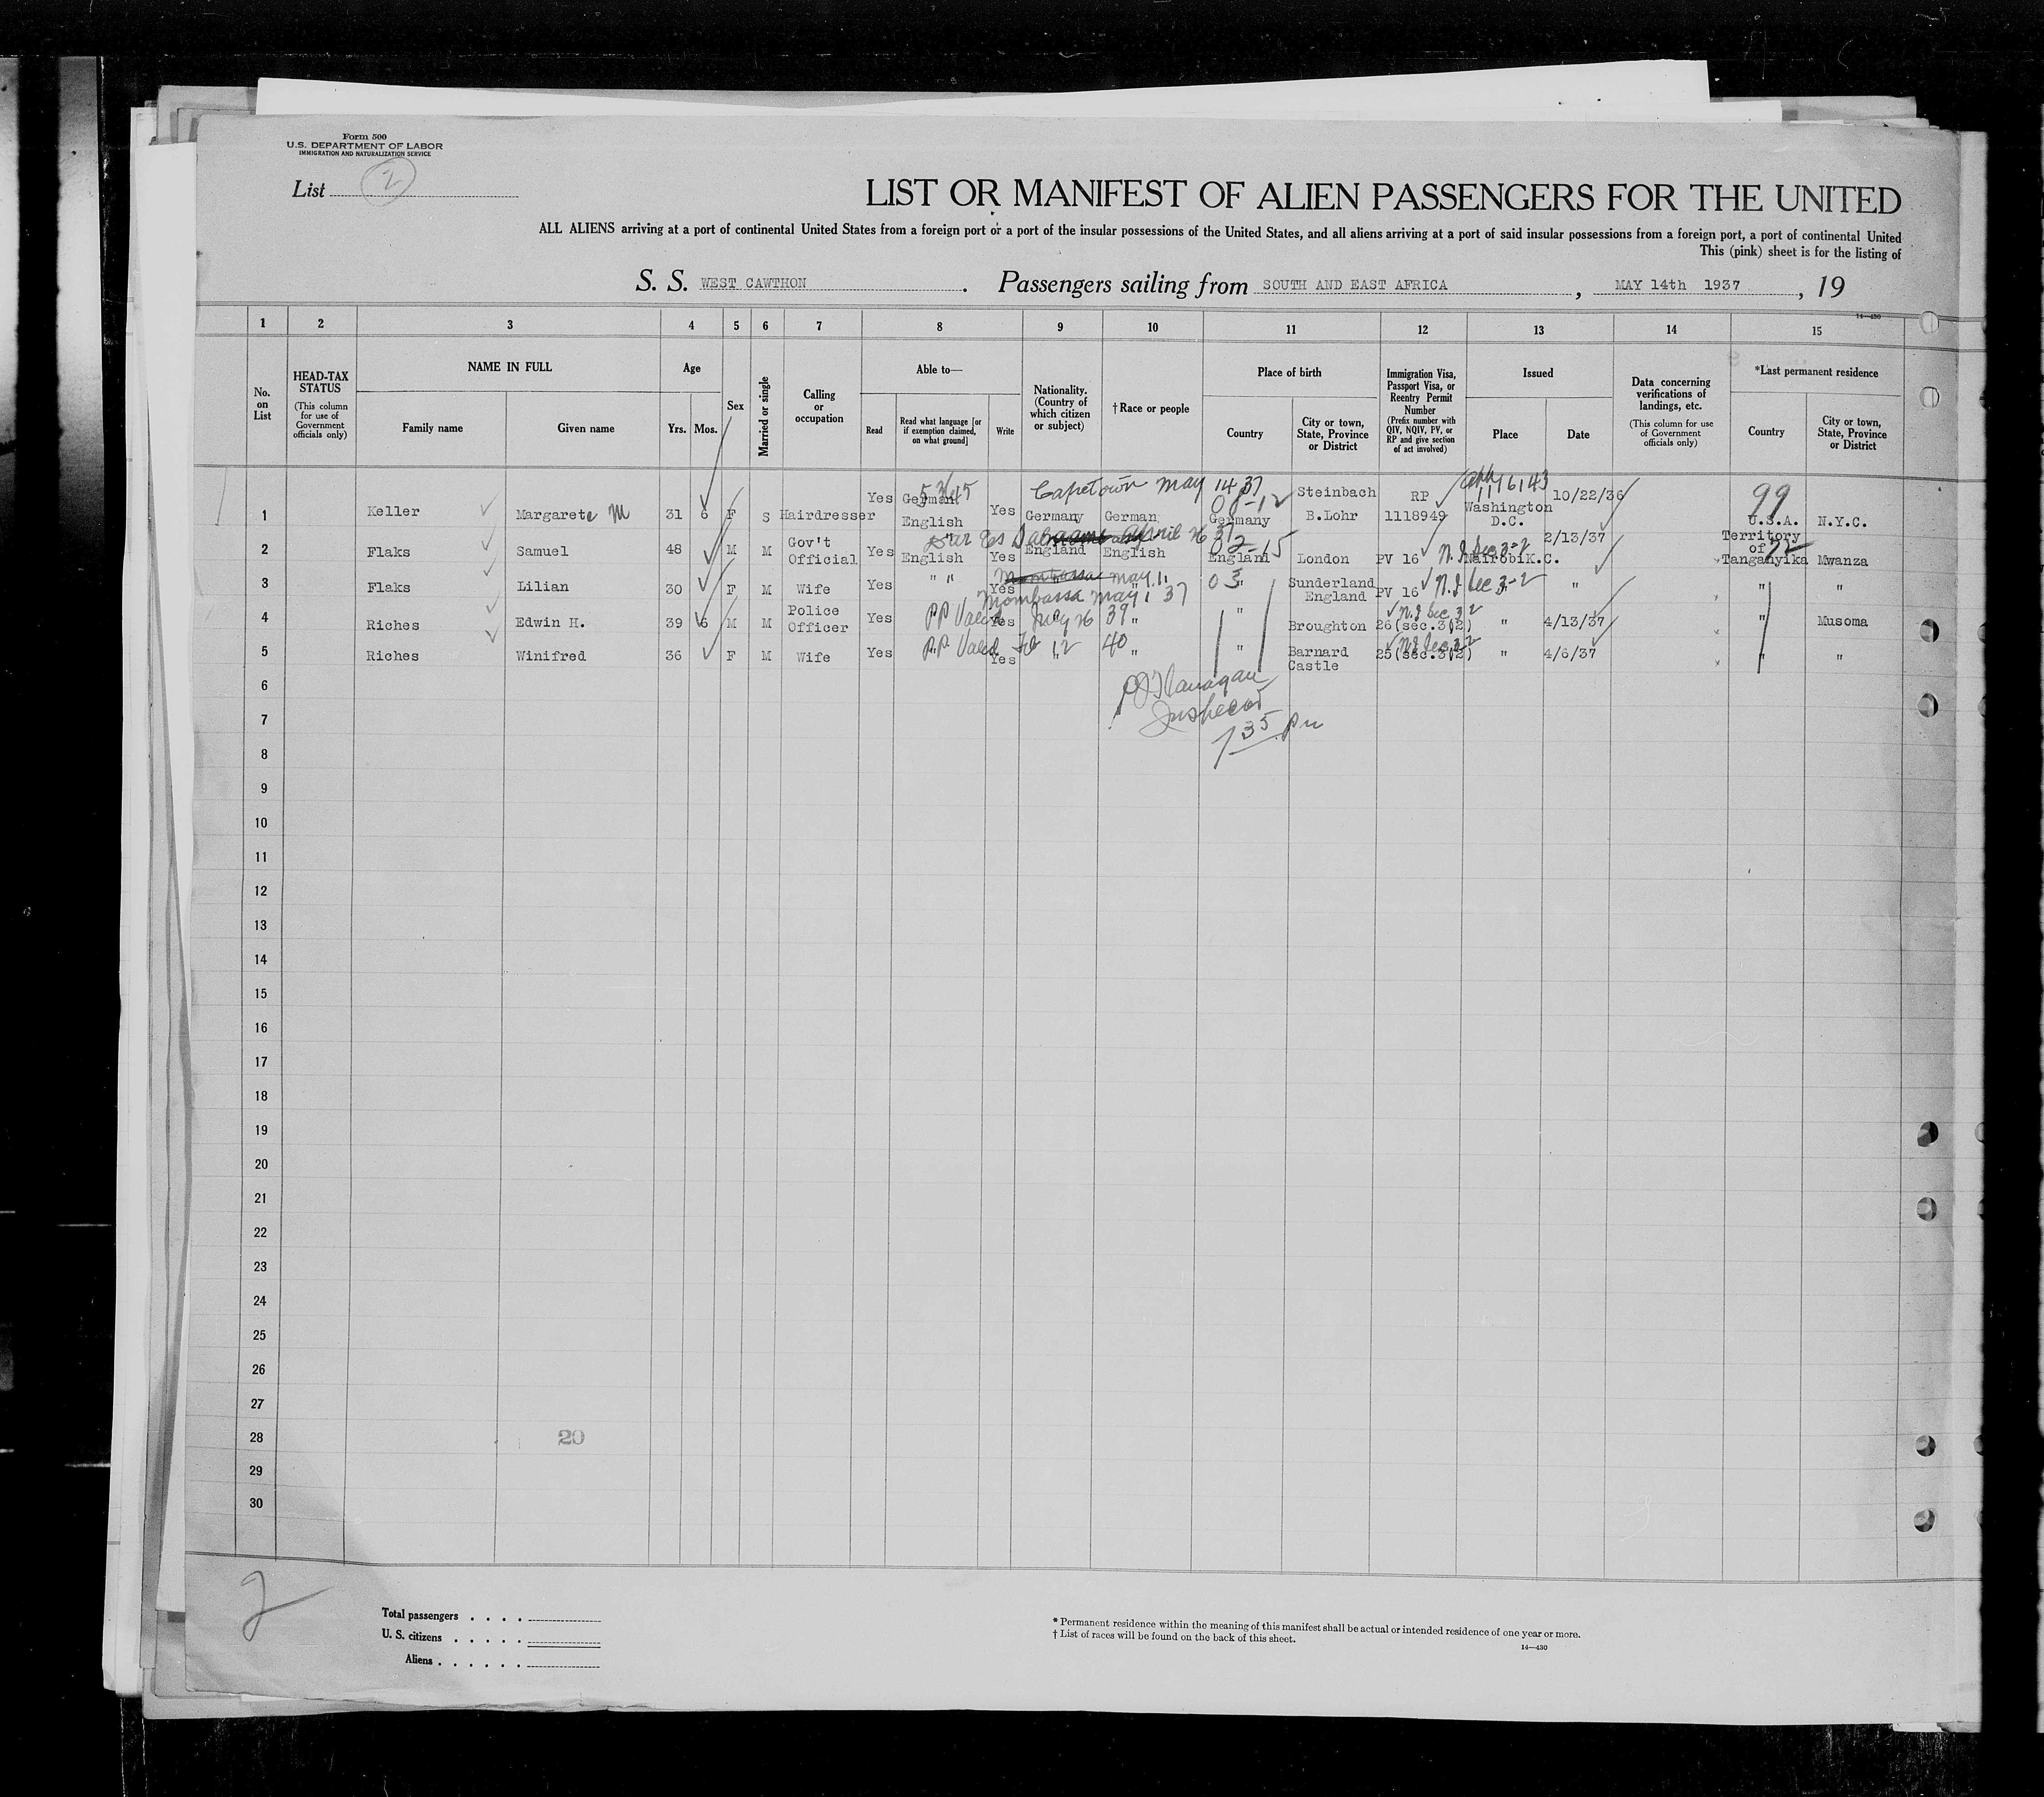 Form 500
U.S. DEPARTMENT OF LABOR
IMMIGRATION AND NATURALIZATION SERVICE
List 2
LIST OR MANIFEST OF ALIEN PASSENGERS FOR THE UNITED
ALL ALIENS arriving at a port of continental United States from a foreign port or a port of the insular possessions of the United States, and all aliens arriving at a port of said insular possessions from a foreign port, a port of continental United
This (pink) sheet is for the listing of
S. S. WEST CAWTHON. Passengers sailing from SOUTH AND EAST AFRICA, MAY 14th 1937, 19
14—430
1 2 3 4 5 6 7 8 9 10 11 12 13 14 15
No. on List
HEAD-TAX STATUS
(This column for use of Government officials only)
NAME IN FULL
Family name
Given name
Age
Yrs. Mos.
Sex
Married or single
Calling or occupation
Able to—
Read
Read what language [or if exemption claimed, on what ground]
Write
Nationality. (Country of which citizen or subject)
†Race or people
Place of birth
Country
City or town, State, Province or District
Immigration Visa, Passport Visa, or Reentry Permit Number
(Prefix number with QIV, NQIV, PV, or RP and give section of act involved)
Issued
Place
Date
Data concerning verifications of landings, etc.
(This column for use of Government officials only)
*Last permanent residence
Country
City or town, State, Province or District
Capetown May 14 37
1 Keller Margarete M 31 6 F S Hairdresser Yes German English Yes Germany German Germany Steinbach B.Lohr RP 1118949 Washington D.C. 10/22/36 99 U.S.A. N.Y.C.
08-12
April 26 37
2 Flaks Samuel 48 M M Gov't Official Yes English Yes England English England London PV 16 Nairobi K.C. 2/13/37 Territory of Tanganyika Mwanza
02-15
N.I. Sec 3-2
72
Mombassa May 11
3 Flaks Lilian 30 F M Wife Yes " " Yes " Sunderland England PV 16 N.I. Sec 3-2 " " "
Mombassa May 1 37
4 Riches Edwin H. 39 6 M M Police Officer Yes PP Valid Yes May 26 39 " " Broughton 26(sec.3(2) N.I. Sec 3 2 " 4/13/37 " Musoma
5 Riches Winifred 36 F M Wife Yes P.P. Valid Yes Feb 12 40 " " " Barnard Castle 25(sec.3(2) N.I. Sec 3 2 " 4/6/37 " "
6
Inspector
7
1 35 pm
8
9
10
11
12
13
14
15
16
17
18
19
20
21
22
23
24
25
26
27
28 20
29
30
2
Total passengers
U. S. citizens
Aliens
* Permanent residence within the meaning of this manifest shall be actual or intended residence of one year or more.
† List of races will be found on the back of this sheet.
14—430